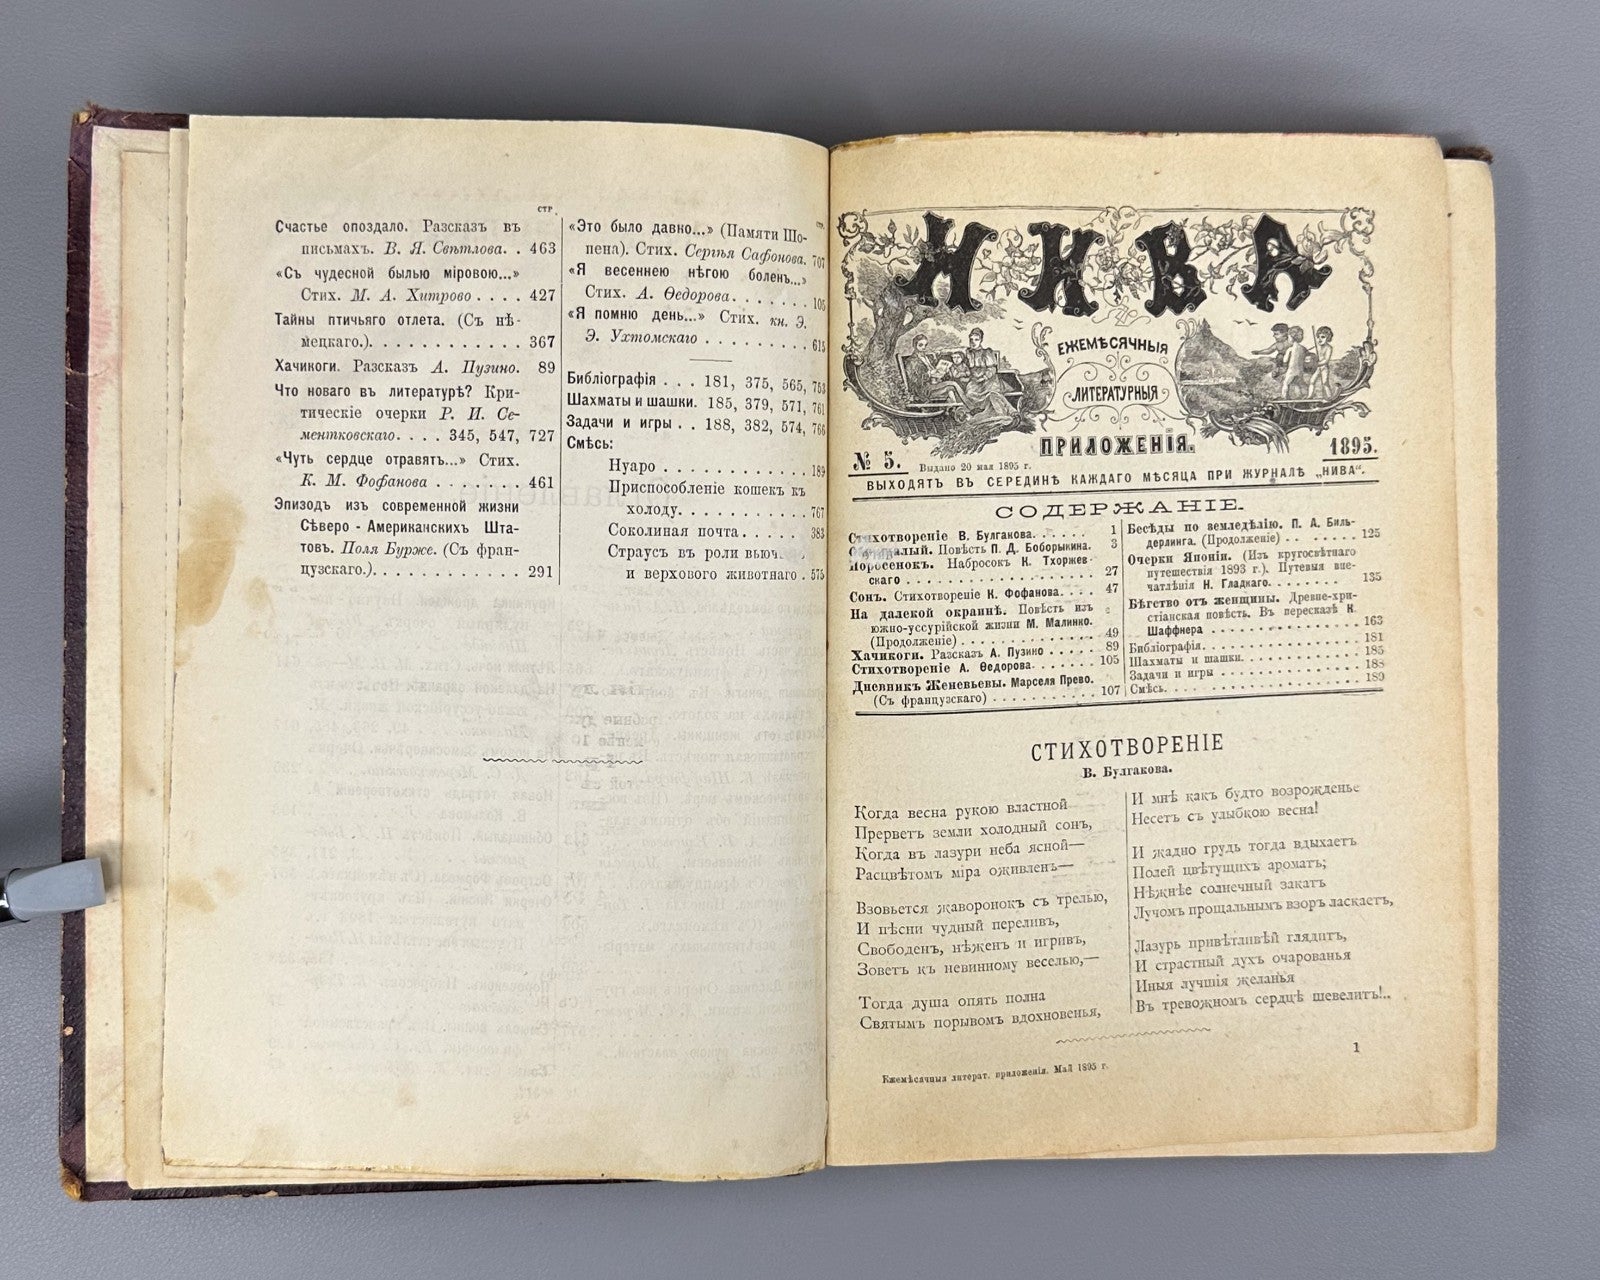 стр.
Счастье опоздало. Разсказъ въ
письмахъ. В. Я. Свѣтлова. . 463
«Съ чудесной былью міровою...»
Стих. М. А. Хитрово . . . . 427
Тайны птичьяго отлета. (Съ нѣ-
мецкаго.). . . . . . . . . . . . 367
Хачикоги. Разсказъ А. Пузино. 89
Что новаго въ литературѣ? Кри-
тическіе очерки Р. И. Се-
ментковскаго. . . . 345, 547, 727
«Чуть сердце отравятъ...» Стих.
К. М. Фофанова . . . . . . . 461
Эпизодъ изъ современной жизни
Сѣверо - Американскихъ Шта-
товъ. Поля Бурже. (Съ фран-
цузскаго.). . . . . . . . . . . . 291
стр.
«Это было давно...» (Памяти Шо-
пена). Стих. Сергѣя Сафонова. 707
«Я весеннею нѣгою боленъ...»
Стих. А. Ѳедорова. . . . . . . . 105
«Я помню день...» Стих. кн. Э.
Э. Ухтомскаго . . . . . . . . . . 615
Библіографія . . . 181, 375, 565, 753
Шахматы и шашки. 185, 379, 571, 761
Задачи и игры . . 188, 382, 574, 766
Смѣсь:
Нуаро . . . . . . . . . . . . . 189
Приспособленіе кошекъ къ
холоду. . . . . . . . . . . . 767
Соколиная почта . . . . . . 383
Страусъ въ роли вьюч.
и верхового животнаго . 575
НИВА
ЕЖЕМѢСЯЧНЫЯ
ЛИТЕРАТУРНЫЯ
ПРИЛОЖЕНІЯ.
№ 5. Выдано 20 мая 1895 г. 1895.
ВЫХОДЯТЪ ВЪ СЕРЕДИНѢ КАЖДАГО МѢСЯЦА ПРИ ЖУРНАЛѢ „НИВА“.
СОДЕРЖАНІЕ.
Стихотвореніе В. Булгакова. . . . . . 1
Повѣсть П. Д. Боборыкина. 3
Поросенокъ. Набросокъ К. Тхоржев-
скаго . . . . . . . . . . . . . . . . 27
Сонъ. Стихотвореніе К. Фофанова. . . . 47
На далекой окраинѣ. Повѣсть изъ
южно-уссурійской жизни М. Малинко.
(Продолженіе) . . . . . . . . . . . . 49
Хачикоги. Разсказъ А. Пузино . . . . . 89
Стихотвореніе А. Ѳедорова. . . . . . . 105
Дневникъ Женевьевы. Марселя Прево.
(Съ французскаго) . . . . . . . . . . 107
Бесѣды по земледѣлію. П. А. Биль-
дерлинга. (Продолженіе) . . . . . . 125
Очерки Японіи. (Изъ кругосвѣтнаго
путешествія 1893 г.). Путевыя впе-
чатлѣнія Н. Гладкаго. . . . . . . . 135
Бѣгство отъ женщины. Древне-хри-
стіанская повѣсть. Въ пересказѣ К.
Шаффнера . . . . . . . . . . . . . 163
Библіографія. . . . . . . . . . . . . 181
Шахматы и шашки. . . . . . . . . . . 185
Задачи и игры . . . . . . . . . . . . 188
Смѣсь. . . . . . . . . . . . . . . . 189
СТИХОТВОРЕНІЕ
В. Булгакова.
Когда весна рукою властной
Прерветъ земли холодный сонъ,
Когда въ лазури неба ясной—
Расцвѣтомъ міра оживленъ—
Взовьется жаворонокъ съ трелью,
И пѣсни чудный переливъ,
Свободенъ, нѣженъ и игривъ,
Зоветъ къ невинному веселью,—
Тогда душа опять полна
Святымъ порывомъ вдохновенья,
И мнѣ какъ будто возрожденье
Несетъ съ улыбкою весна!
И жадно грудь тогда вдыхаетъ
Полей цвѣтущихъ ароматъ;
Нѣжнѣе солнечный закатъ
Лучомъ прощальнымъ взоръ ласкаетъ,
Лазурь привѣтливѣй глядитъ,
И страстный духъ очарованья
Иныя лучшія желанья
Въ тревожномъ сердцѣ шевелитъ!..
1
Ежемѣсячныя литерат. приложенія. Май 1895 г.